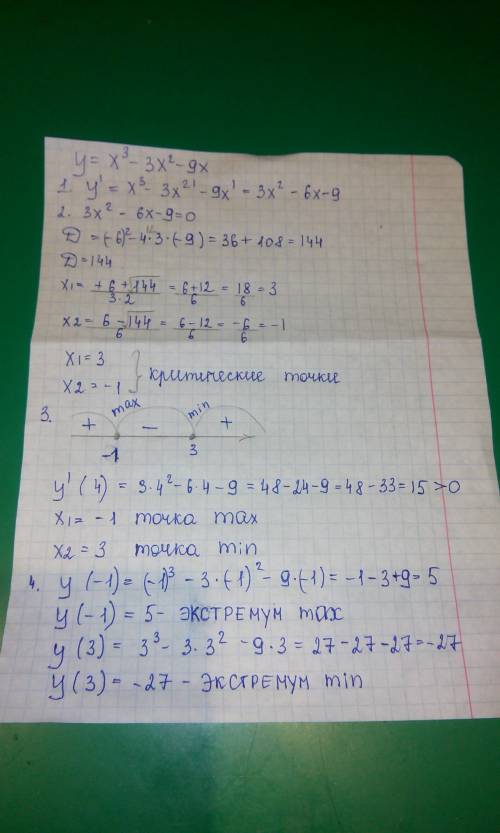 y = x³ - 3x² - 9x
1. y' = x³ - 3x²' - 9x' = 3x² - 6x - 9
2. 3x² - 6x - 9 = 0
Д = (-6)² - 4·3·(-9) = 36 + 108 = 144
Д = 144
x1 = +6+√144/3·2 = 6+12/6 = 18/6 = 3
x2 = 6-√144/6 = 6-12/6 = -6/6 = -1
x1 = 3
x2 = -1 } критические точки
3. + max - min +
-1 3
y'(4) = 3·4² - 6·4 - 9 = 48 - 24 - 9 = 48 - 33 = 15 > 0
x1 = -1 точка max
x2 = 3 точка min
4. y(-1) = (-1)³ - 3·(-1)² - 9·(-1) = -1 - 3 + 9 = 5
y(-1) = 5 - экстремум max
y(3) = 3³ - 3·3² - 9·3 = 27 - 27 - 27 = -27
y(3) = -27 - экстремум min